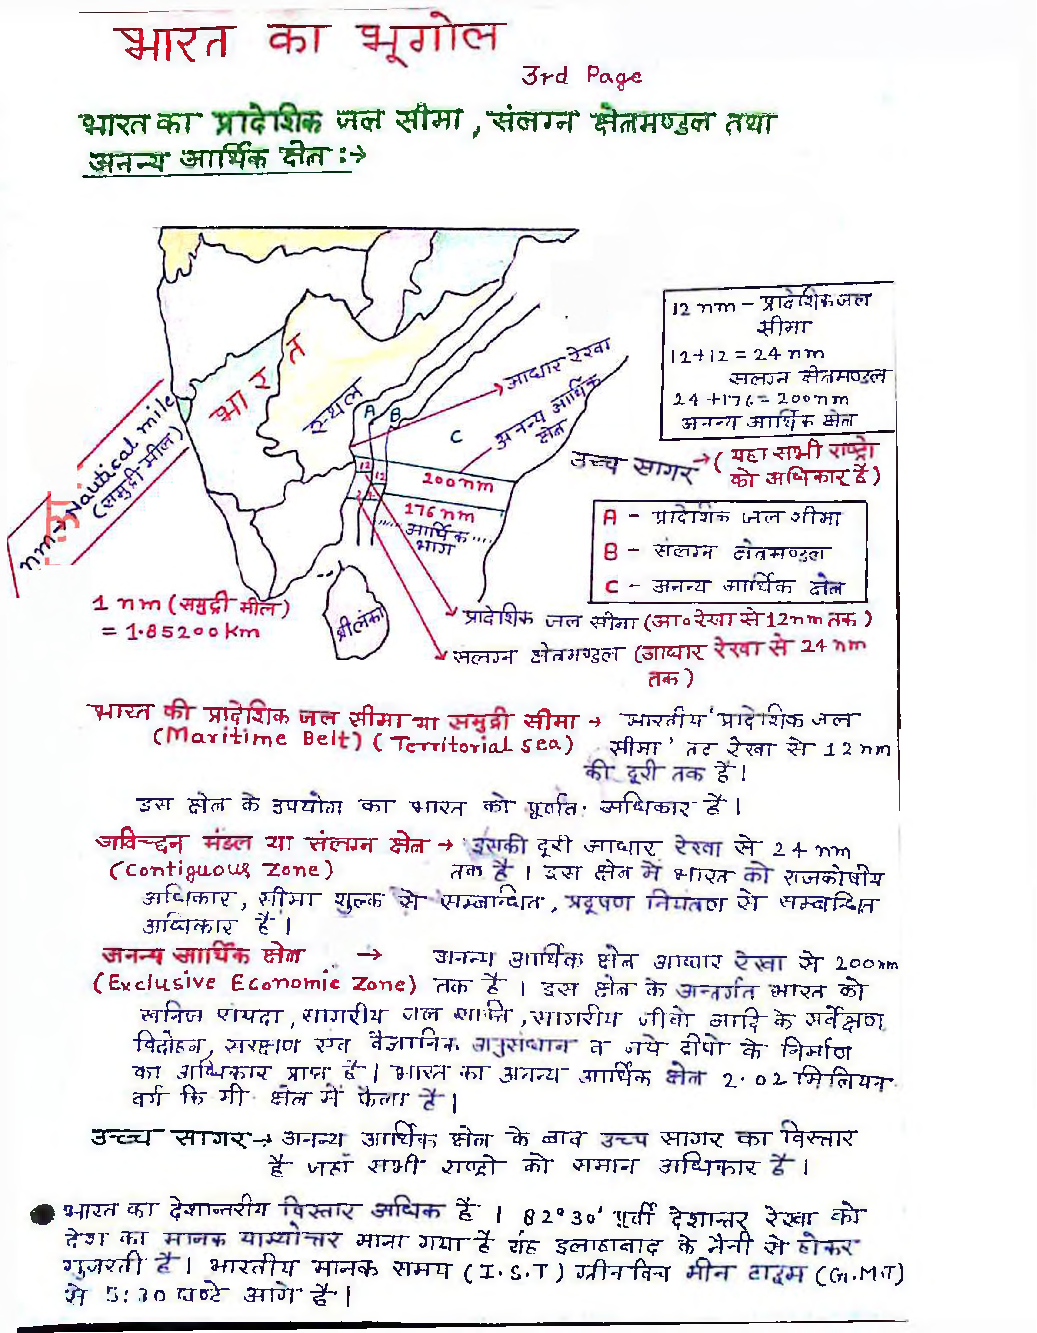 भारत का भूगोल
3rd Page
भारत का प्रादेशिक जल सीमा, संलग्न क्षेत्रमण्डल तथा
अनन्य आर्थिक क्षेत्र :→
12 nm - प्रादेशिक जल
सीमा
12+12 = 24 nm
सलग्न क्षेत्रमण्डल
24 +176 = 200nm
अनन्य आर्थिक क्षेत्र
भारत
स्थल
A
B
C
आधार रेखा
अनन्य आर्थिक
क्षेत्र
उच्च सागर → (यहा सभी राष्ट्रो
को अधिकार है)
12
12
200nm
176 nm
आर्थिक
भाग
nm → Nautical mile
(समुद्री मील)
A - प्रादेशिक जल सीमा
B - संलग्न क्षेत्रमण्डल
C - अनन्य आर्थिक क्षेत्र
1 nm (समुद्री मील)
= 1.85200km
श्रीलंका
प्रादेशिक जल सीमा (आ० रेखा से 12nm तक)
सलग्न क्षेत्रमण्डल (आधार रेखा से 24 nm
तक)
भारत की प्रादेशिक जल सीमा या समुद्री सीमा → भारतीय 'प्रादेशिक जल
(Maritime Belt) (Territorial sea) सीमा' तट रेखा से 12nm
की दूरी तक है।
इस क्षेत्र के उपयोग का भारत को पूर्णतः अधिकार है।
अविच्छन मंडल या संलग्न क्षेत्र → इसकी दूरी आधार रेखा से 24 nm
(Contiguous Zone) तक है। इस क्षेत्र में भारत को राजकोषीय
अधिकार, सीमा शुल्क से सम्बन्धित, प्रदूषण नियंत्रण से सम्बन्धित
अधिकार है।
अनन्य आर्थिक क्षेत्र → अनन्य आर्थिक क्षेत्र आधार रेखा से 200nm
(Exclusive Economic Zone) तक है। इस क्षेत्र के अन्तर्गत भारत को
खनिज संपदा, सागरीय जल शक्ति, सागरीय जीवो आदि के सर्वेक्षण
विदोहन, सरक्षण एव वैज्ञानिक अनुसंधान व नये द्वीपो के निर्माण
का अधिकार प्राप्त है। भारत का अनन्य आर्थिक क्षेत्र 2.02 मिलियन
वर्ग कि मी. क्षेत्र में फैला है।
उच्च सागर → अनन्य आर्थिक क्षेत्र के बाद उच्च सागर का विस्तार
है जहाँ सभी राष्ट्रो को समान अधिकार है।
भारत का देशान्तरीय विस्तार अधिक है। 82°30' पूर्वी देशान्तर रेखा को
देश का मानक याम्योत्तर माना गया है यह इलाहाबाद के नैनी से होकर
गुजरती है। भारतीय मानक समय (I.S.T) ग्रीनविच मीन टाइम (G.M.T)
से 5:30 घण्टे आगे है।